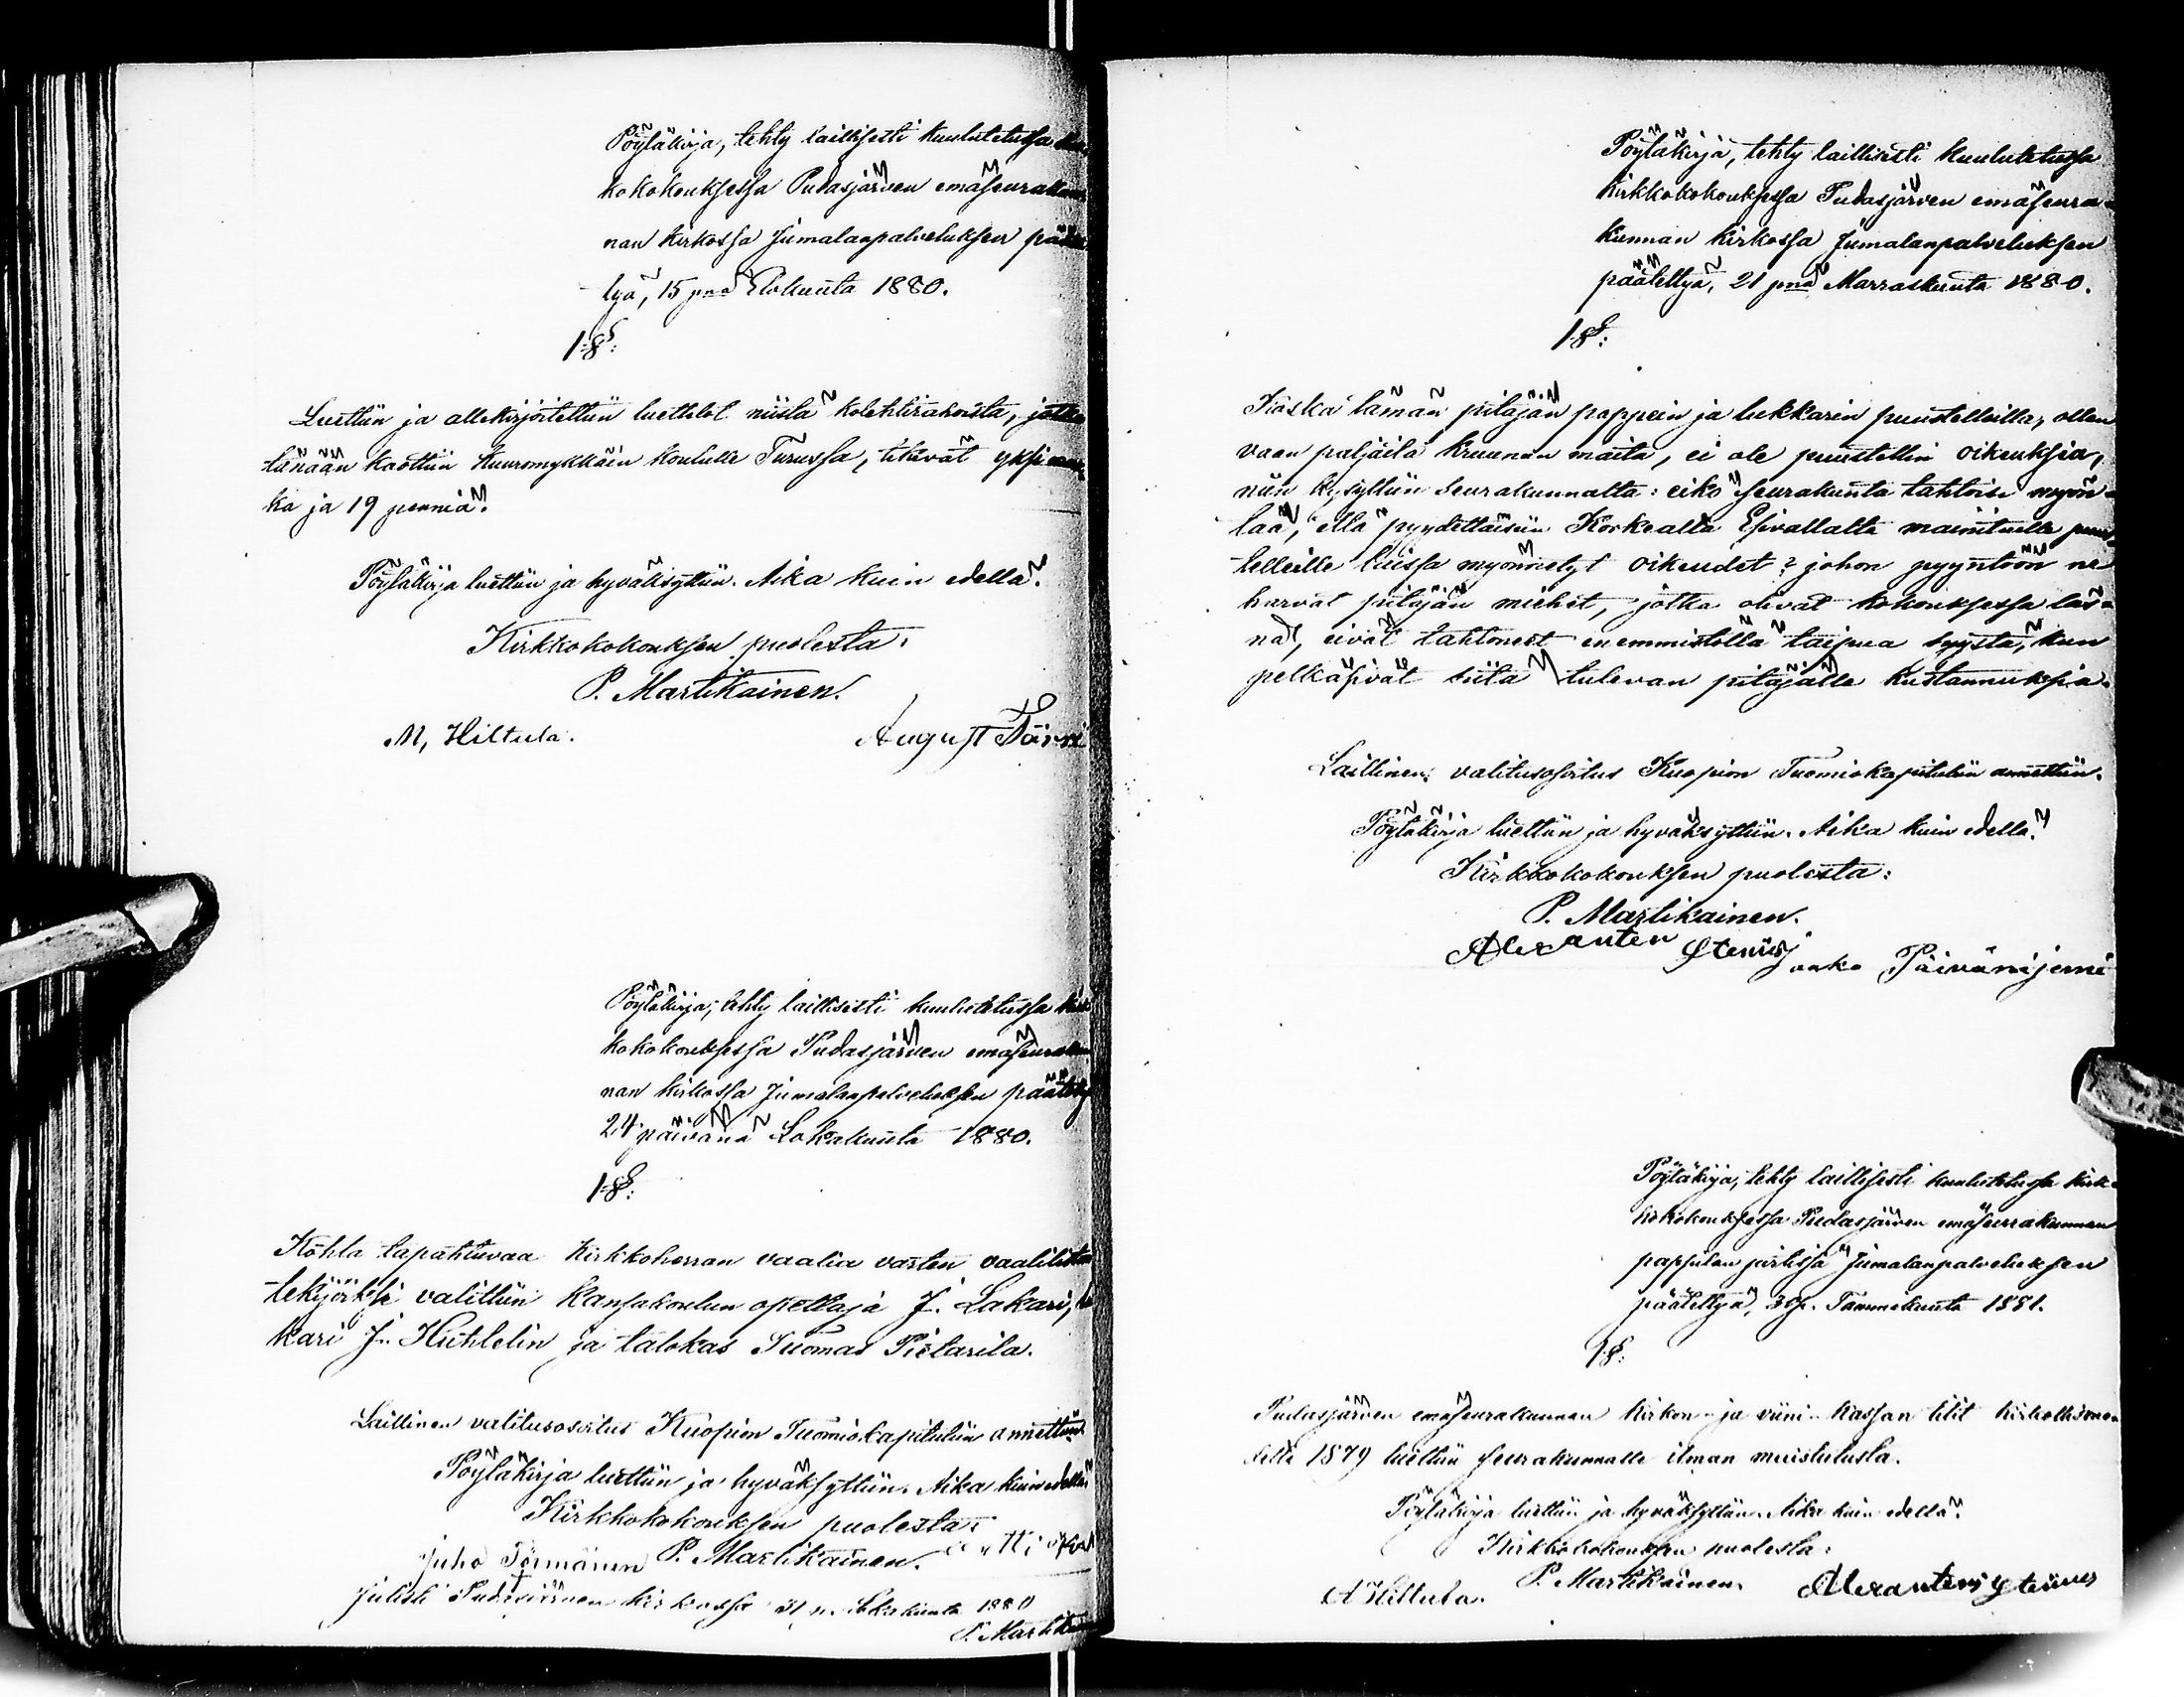 Pöytäkirja, tehty laillisesti kuulutetussa
kokokouksessa Pudasjärven emäseurakun
nan kirkossa Jumalanpalveluksen päätet
tyä, 15 pnä Elokuuta 1880.
1 §:
Luettiin ja allekirjoitettiin luettelot niistä kolehtirahoista, jotka
tänään kaottiin Kuuromykkäin koululle Turussa, tekivät yksi mar
ka ja 19 penniä.
Pöytäkirja luettiin ja hyväksyttiin. Aika kuin edellä.
Kirkkokokouksen puolesta:
P. Martikainen.
M, Hiltula. August Törri
Pöytäkirja, tehty laillisesti kuulutetussa kirk
kokokouksessa Pudasjärven emäseurakun
nan kirkossa Jumalanpalveluksen päätetty
24 päivänä Lokakuuta 1880.
1 §:
Kohta tapahtuvaa kirkkoherran vaalia varten vaalilistan
tekijöiksi valittiin kansakoulun opettaja J. Lakari,
kari J. Huhtelin ja talokas Tuomas Pietarila.
Laillinen valitusosoitus Kuopion Tuomiokapituliin annettiin.
Pöytäkirja luettiin ja hyväksyttiin. Aika kuin edellä
Kirkkokokouksen puolesta:
Juho Törmänen P. Martikainen.
Julisti Pudasjärven kirkossa 31 p. Lokakuuta 1880
P. Martikainen
Pöytäkirja, tehty laillisesti kuulutetussa
kirkkokokouksessa Pudasjärven emäseura-
kunnan kirkossa Jumalanpalveluksen
päätettyä, 21 pnä Marraskuuta 1880.
1 §:
Koska tämän pitäjän pappein ja lukkarin puustelleilla, ollen
vaan paljaita kruunun maita, ei ole puustellin oikeuksia,
niin kysyttiin seurakunnalta: eikö seurakunta tahtoisi myön-
tää, että pyydettäisiin Korkealta Esivallalta mainituille puus-
telleille luissa myönnetyt oikeudet? johon pyyntöön ne
harvat pitäjän miehet, jotka olivat kokouksessa läs-
nä, eivät tahtoneet enemmistöllä taipua syystä, kun
pelkäsivät siitä tulevan pitäjälle kustannuksia.
Laillinen valitusosoitus Kuopion Tuomiokapituliin annettiin.
Pöytäkirja luettiin ja hyväksyttiin. Aika kuin edellä.
Kirkkokokouksen puolesta:
P. Martikainen.
Alexanter Stenius Jaako Päivänijemi
Pöytäkirja, tehty laillisesti kuulutetussa kirk-
kokokouksessa Pudasjärven emäseurakunnan
pappilan pirtissä Jumalanpalveluksen
päätettyä, 30 p. Tammikuuta 1881.
1 §:
Pudasjärven emäseurakunnan kirkon- ja viini-kassan tilit kirkollisvuo-
delle 1879 luettiin seurakunnalle ilman muistutusta.
Pöytäkirja luettiin ja hyväksyttiin. Aika kuin edellä.
Kirkkokokouksen puolesta:
A Hiltula. P. Martikainen. Alexanteri Stenius